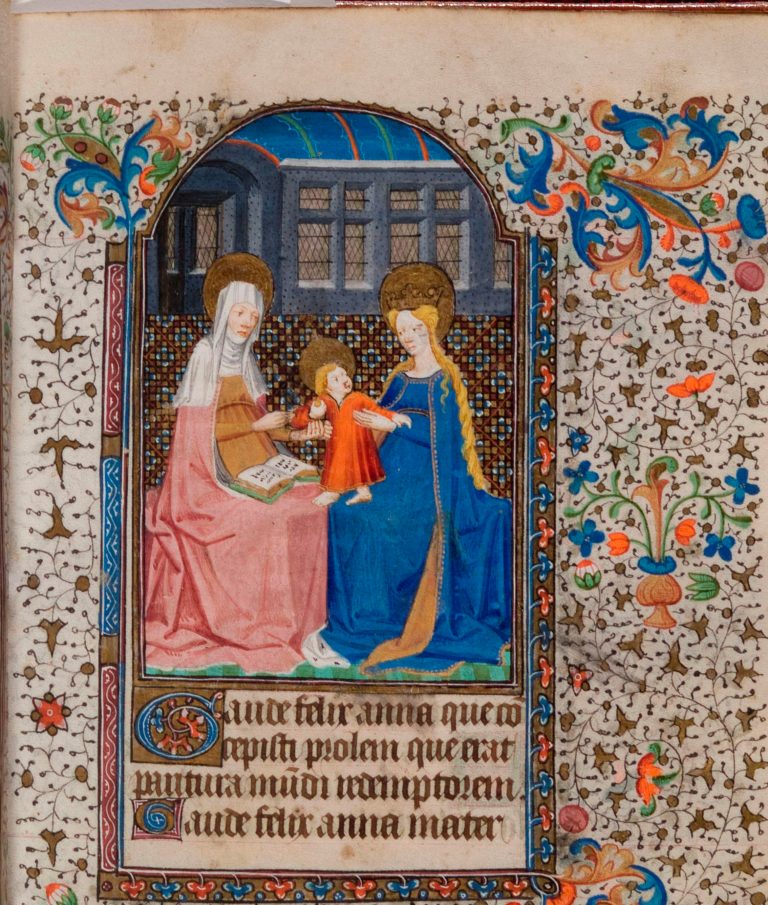 Gaude felix anna que co
cepisti prolem que erat
paritura mūdi redemptorem
Gaude felix anna mater